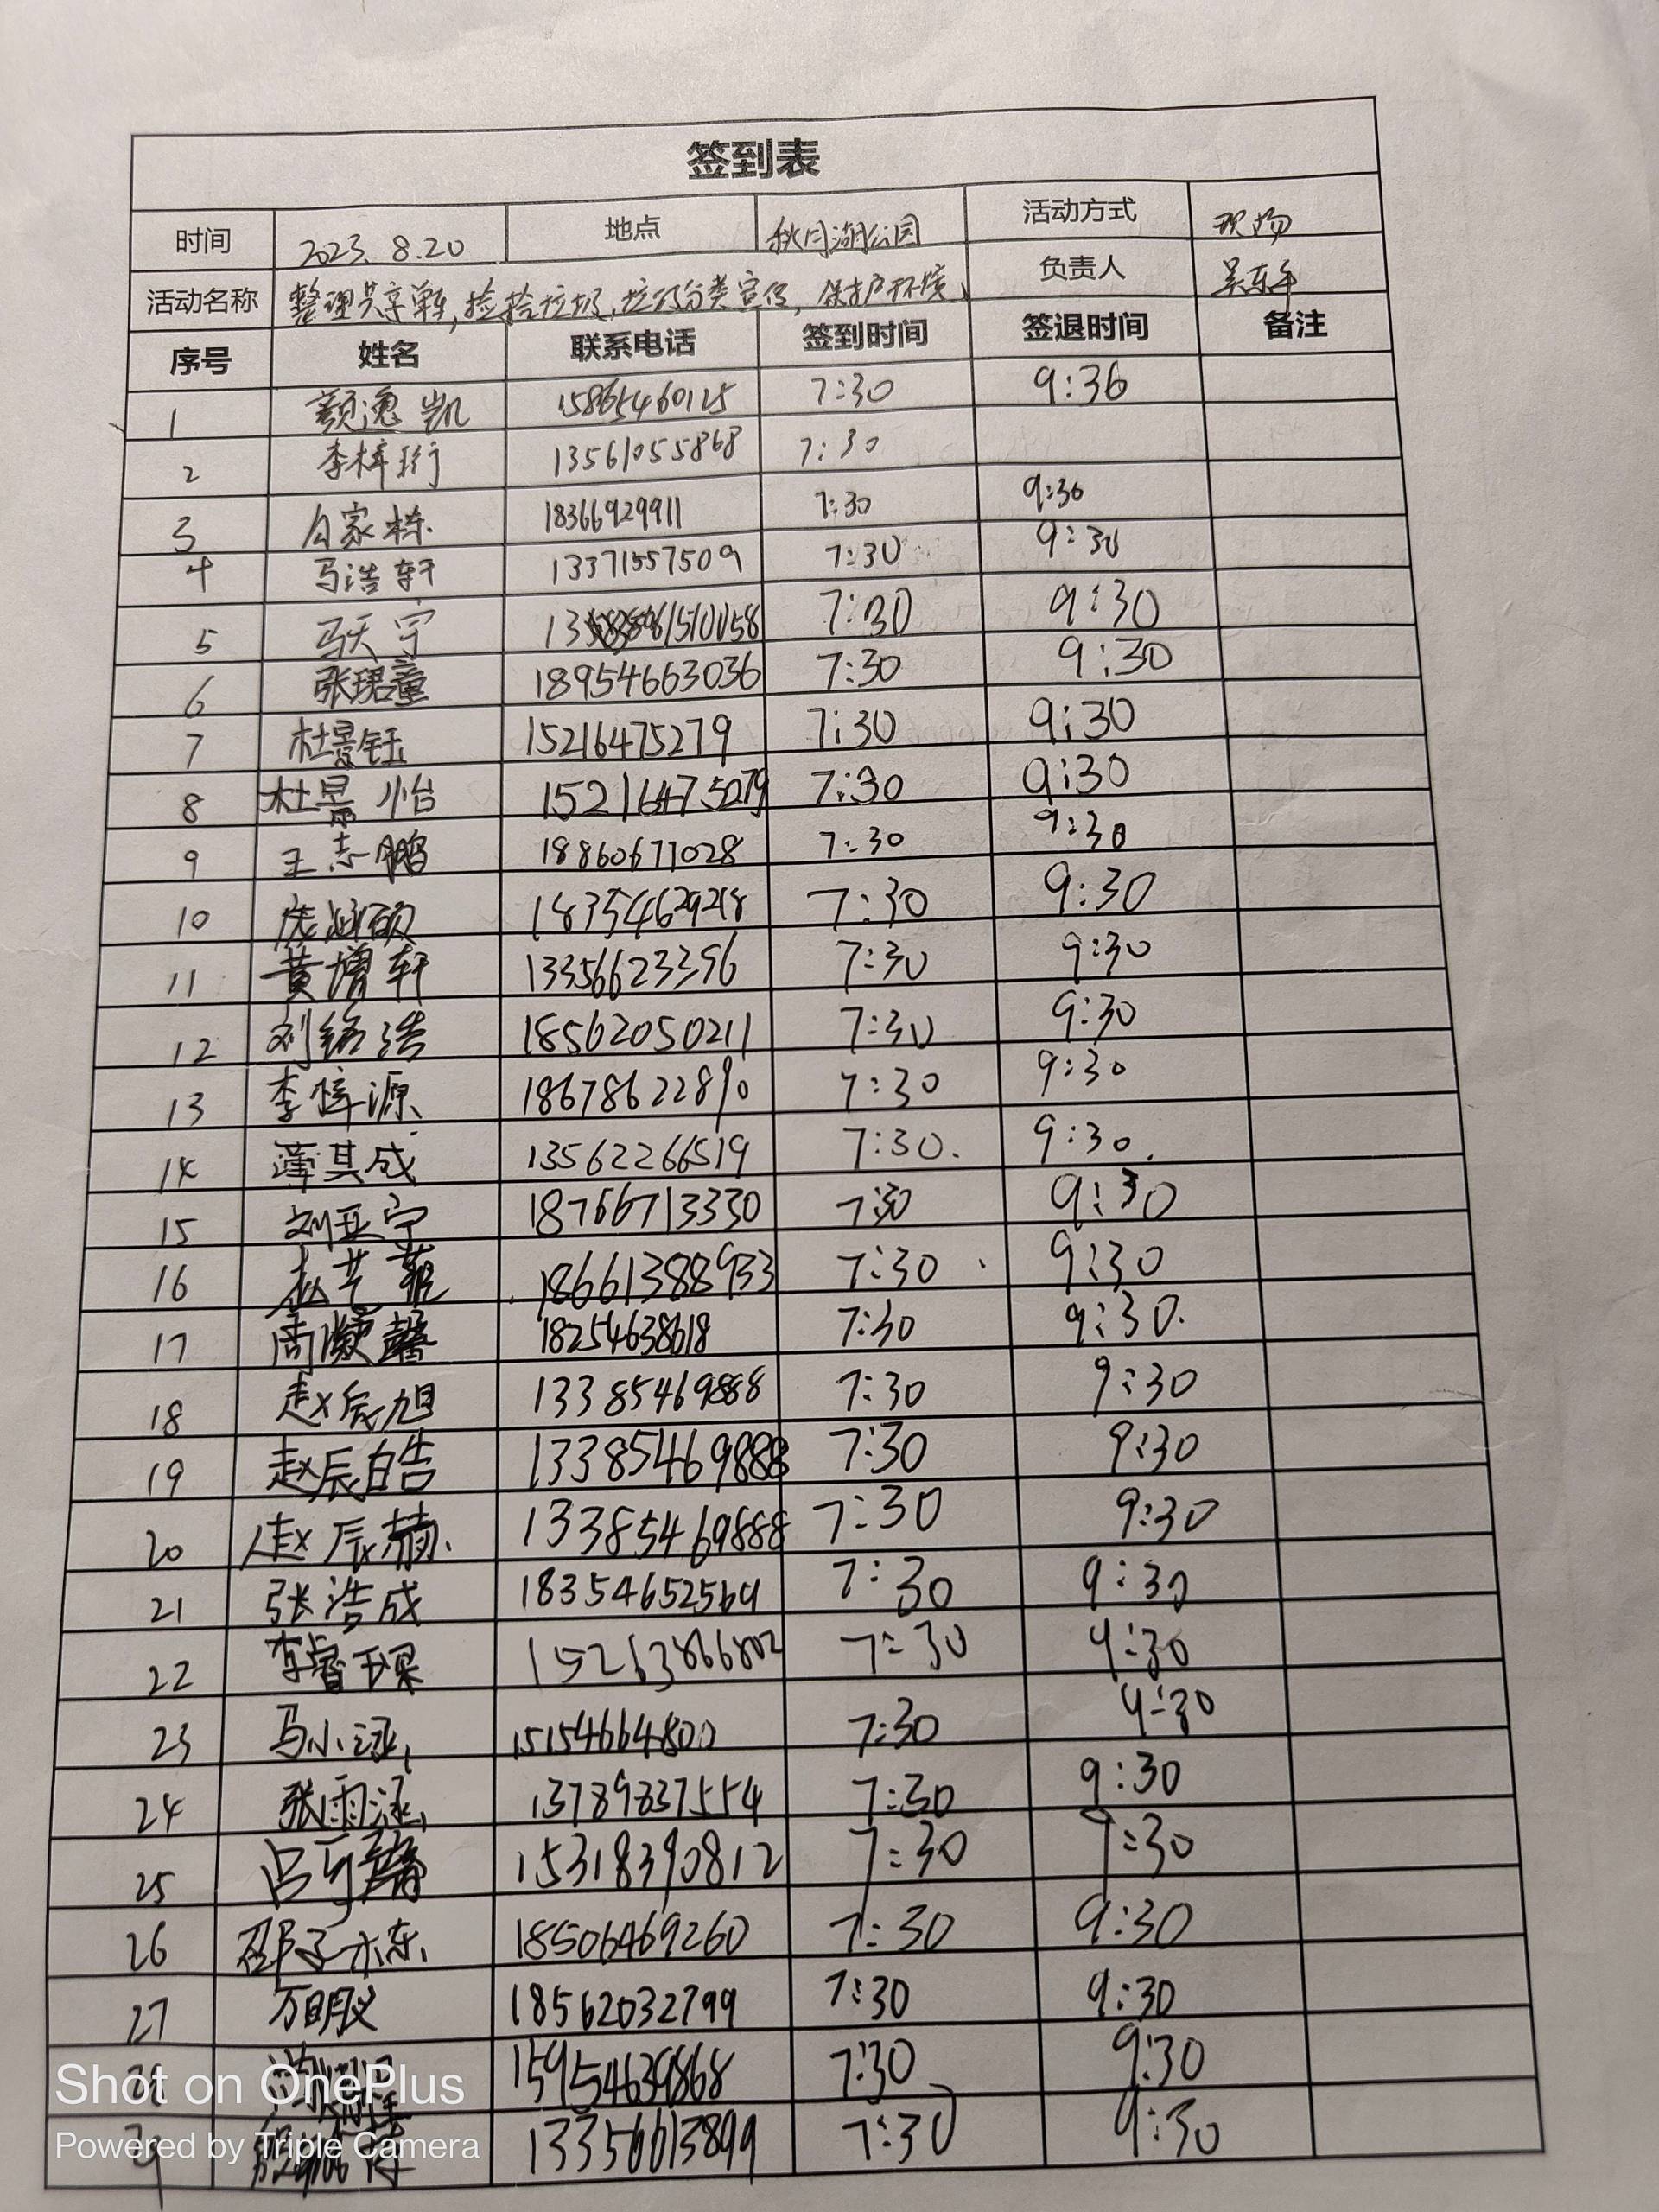 签到表
时间 2023. 8.20 地点 秋月湖公园 活动方式 现场
活动名称 整理共享单车,捡拾垃圾,垃圾分类宣传,保护环境、 负责人 吴东午
序号 姓名 联系电话 签到时间 签退时间 备注
1 颜逸凯 15865460125 7:30 9:36
2 李梓珩 13561055868 7:30
3 家栋 18366929911 7:30 9:30
4 马浩轩 13371557509 7:30 9:30
5 马天宁 7:30 9:30
6 张珺童 18954663036 7:30 9:30
7 杜景钰 15216475279 7:30 9:30
8 杜景怡 15216475279 7:30 9:30
9 王志鹏 18860671028 7:30 9:30
10 庞涵硕 18354629218 7:30 9:30
11 黄增轩 13356623396 7:30 9:30
12 刘铭浩 18562050211 7:30 9:30
13 李梓源 18678622890 7:30 9:30
14 薄其成 13562266519 7:30. 9:30.
15 刘亚宁 18766713330 7:30 9:30
16 18661388933 7:30 9:30
17 周灏馨 18254638618 7:30 9:30.
18 赵辰旭 13385469888 7:30 9:30
19 赵辰皓 13385469888 7:30 9:30
20 赵辰 13385469888 7:30 9:30
21 张浩成 18354652569 7:30 9:30
22 李睿琛 15263866802 7:30 9:30
23 马小涵 15154664800 7:30 9:30
24 张雨涵 13789837554 7:30 9:30
25 吕 15318390812 7:30 9:30
26 邵子东 18506469260 7:30 9:30
27 万明义 18562032799 7:30 9:30
15954639868 7:30 9:30
13356613899 7:30 9:30
Shot on OnePlus
Powered by Triple Camera